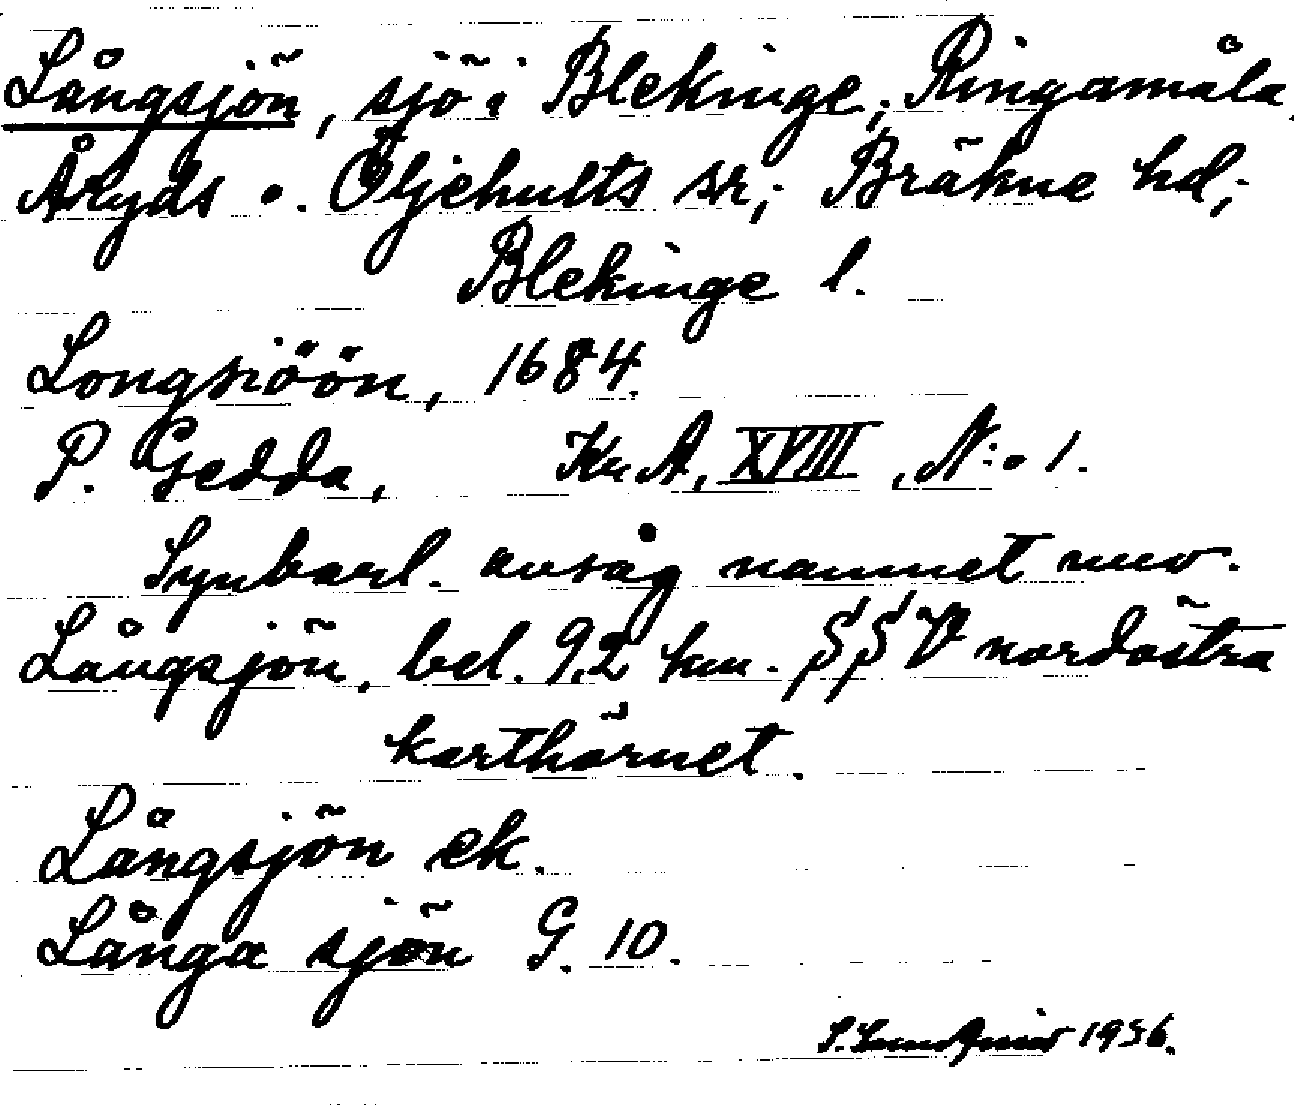 Långsjön, sjö i Blekinge; Ringamåla
Åryds o. Öljehults sr; Bräkne hd;
Blekinge l.
Longsiöön, 1684.
P. Gedda, Kr A, XVIII, N:o 1.
Synbarl. avsåg namnet nuv.
Långsjön, bel. 9,2 km. SSV nordöstra
karthörnet.
Långsjön ek.
Långa sjön G. 10.
S. Lundqvist 1956.